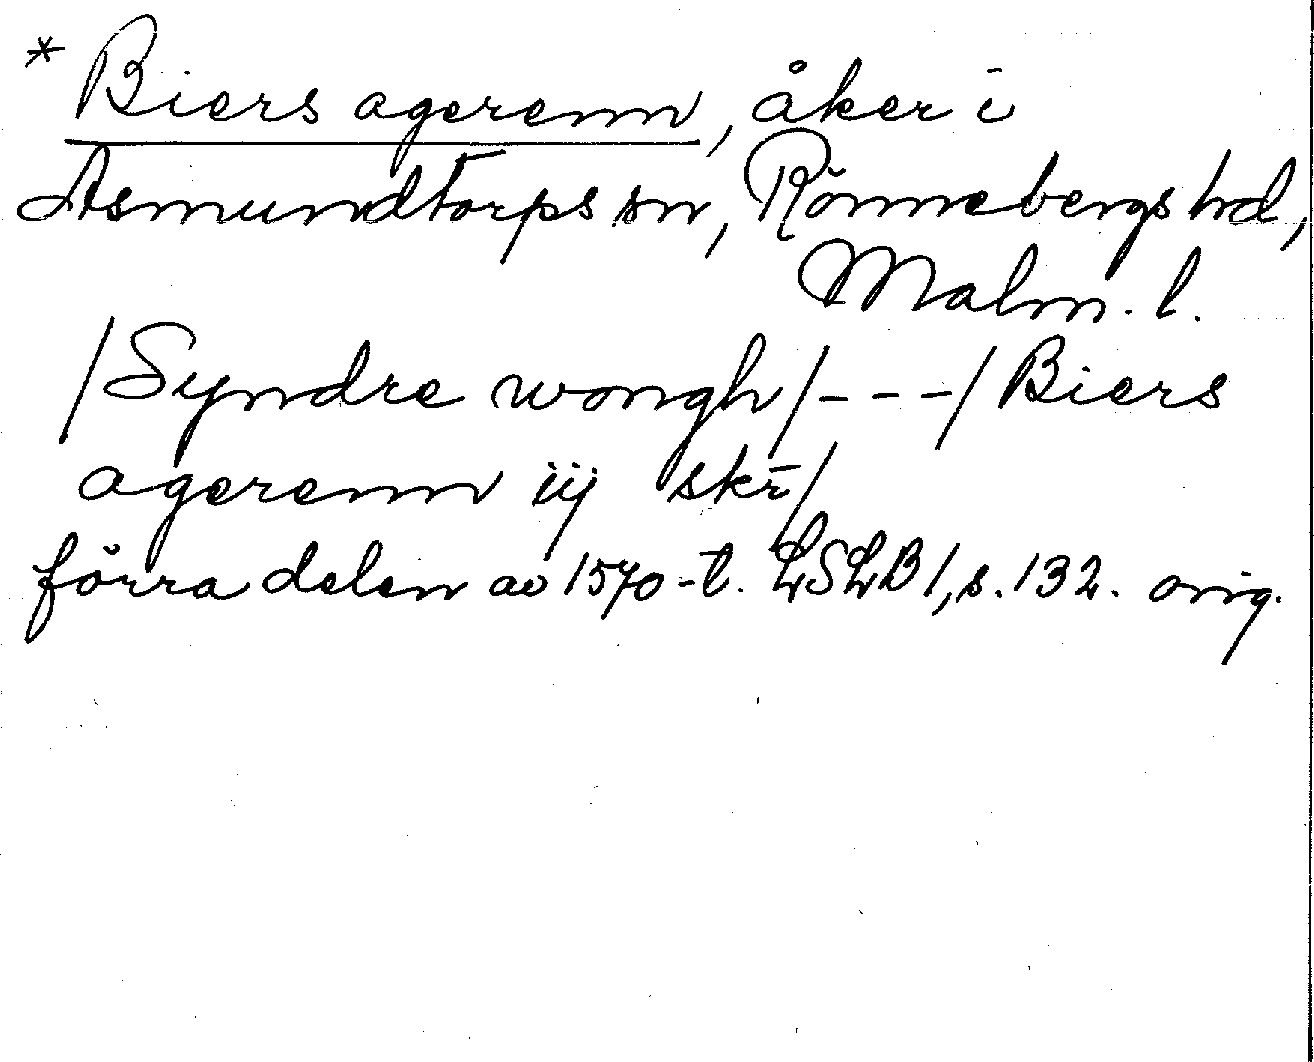 * Biers agerenn, åker i
Asmundtorps sn, Rönnebergs hd,
Malm. l.
/Syndre wongh/---/Biers
agerenn iij skr̄/
förra delen av 1570-t. LSLB1, s. 132. orig.